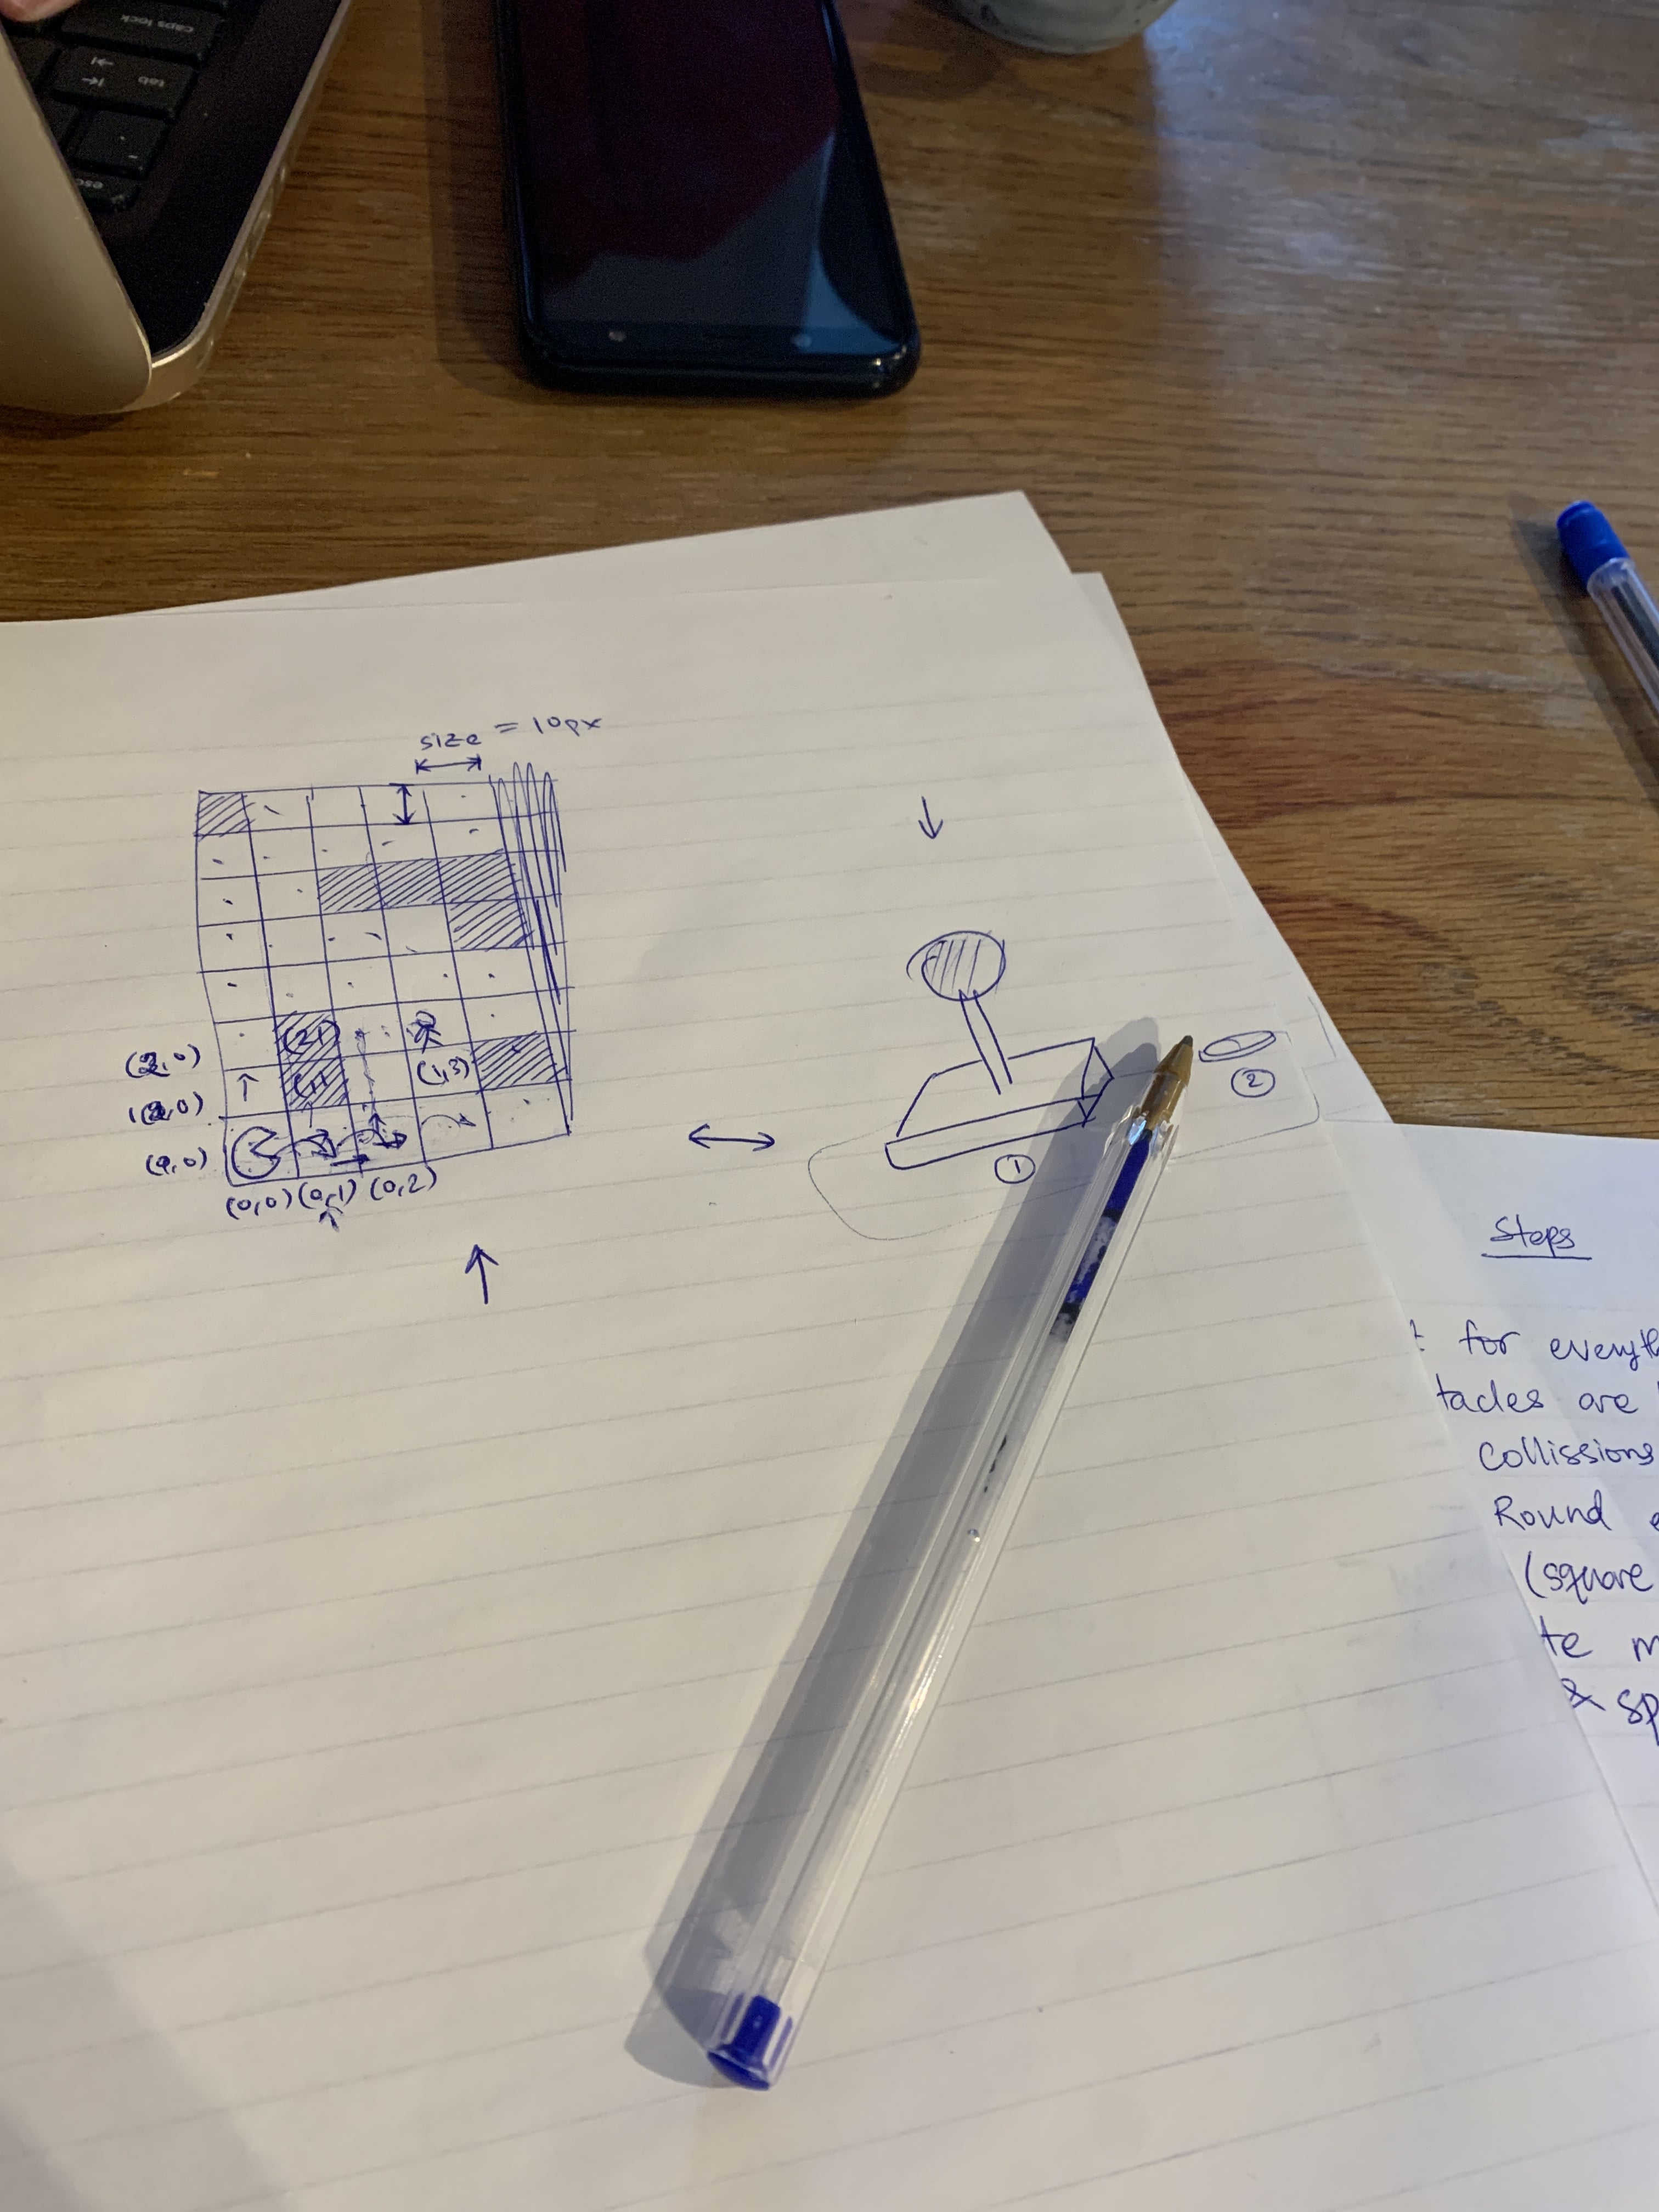 caps lock
tab
esc
size = 10px
(2,1)
(2,0)
(1,1)
(1,3)
(0,0)
(0,0) (0,1) (0,2)
1
2
Steps
for everyth
tacles are
collissions
Round
(square
te m
& sp